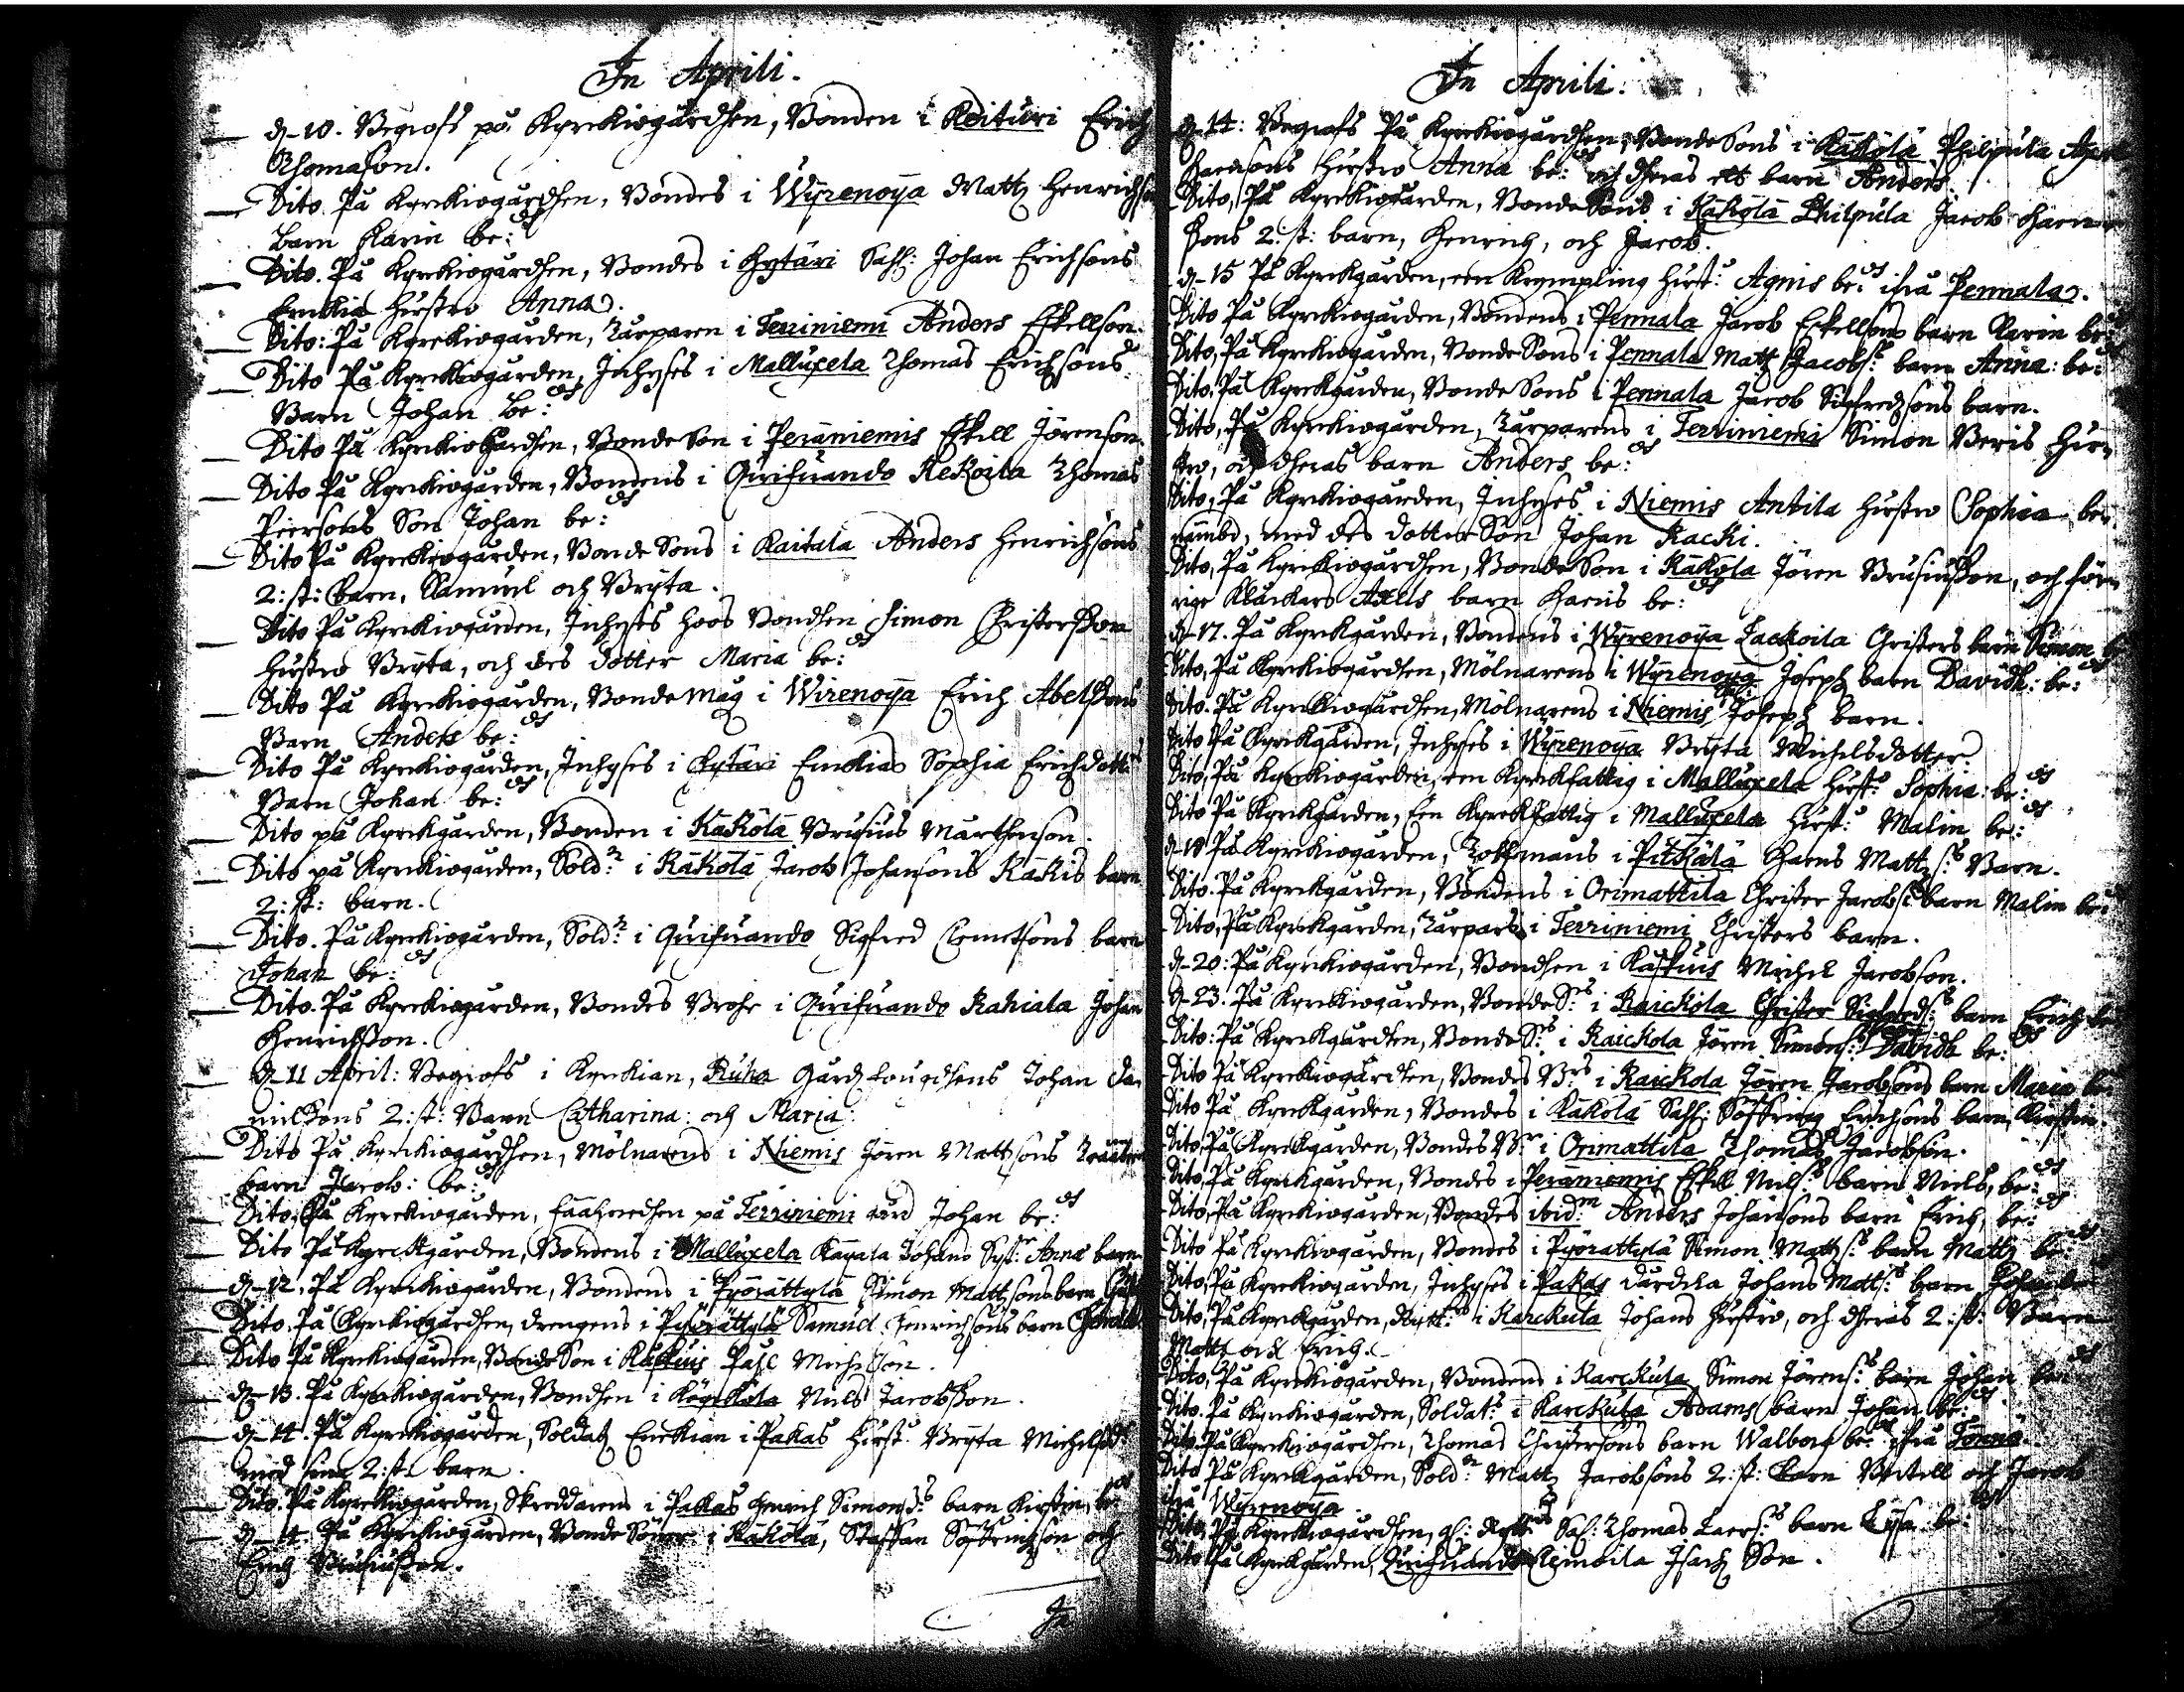 In Aprili.
d. 10. Begrofs på Kyrckiogårdhen, Bonden i Koituri Erich
Thomason.
Dito. På Kyrckiogårdhen, Bondes i Wyrenoya Mattz Henrichson
barn Karin be:
Dito. På Kyrckiogårdhen, Bondes i Hytäri Sahl: Johan Erichsons
Enckia Hustro Anna.
Dito: På Kyrckiogården, Tårparen i Terriniemi Anders Eskellson.
Dito På Kyrckiogården, Inhyses i Malluxela Thomas Erichsons
Barn Johan be:
Dito På Kyrckiogårdhen, Bonde Son i Peräniemis Eskell Jörenson.
Dito På Kyrckiogården, Bondens i Quifuando Keckoila Thomas
Peersons Son Johan be:
Dito På Kyrckiogården, Bonde Sons i Kaitala Anders Henrichsons
2: st: barn, Samuel och Bryta.
Dito På Kyrckiogården, Inhyses hoos Bondhen Simon Christersson
Hustro Bryta, och des dotter Maria be:
Dito På Kyrckiogården, Bondemåg i Wirenoya Erich Abelssons
Barn Anders be:
Dito På Kyrckiogården, Inhyses i Hytäri Enckias Sophia Erichdott:
Barn Johan be:
Dito på Kyrckgården, Bonden i Käkölä Brusius Mårthenson.
Dito på Kyrckiogården, Sold: i Käkölä Jacob Johansons Käkis barn
2: st: barn.
Dito. På Kyrckiogården, Sold: i Quifuando Sigfred Clemetsons barn
Johan be:
Dito. På Kyrckiogården, Bondes Brohr i Quifuando Rahiala Johan
Henrichsson.
d. 11 April: Begrofs i Kyrckian, Ruha Gårdz fougdhens Johan Da-
nielssons 2: st: Barn Catharina: och Maria.
Dito På Kyrckiogårdhen, Mölnarens i Niemis Jören Mattsons
barn Jacob: be:
Dito, På Kyrckiogården, på Terriniemi Johan be:
Dito På Kyrckgården, Bondens i Malluxela Kayala Johans Anna barn
d. 12. På Kyrckiogården, Bondens i Pyörättylä Simon Mattsons barn
Dito. På Kyrckiogårdhen, drengens i Pyörättylä Samuel Henrichsons barn
Dito På Kyrckiogården, Bonde Son i Käskuis Påhl Michelson.
d. 13. På Kyrckiogården, Bondhen i Köyckölä Niels Jacobsson.
d. 14. På Kyrckiogården, Soldatz Enckian i Pakas Hust: Bryta Michelsd:
med sina 2: st: barn.
Dito. På Kyrckiogården, Skreddarens i Pakas Henrich Simons: barn Kirstin, be:
d. 14. På Kyrckiogården, Bonde Söner i Käkölä, Staffan Söfrinchson och
Erich Brusiusson.
In Aprili.
d. 14: Begrofs På Kyrckiogårdhen, Bonde Sons i Käkölä Philpula
Hansons Hustro Anna be: och deras ett barn Anders.
Dito, På Kyrckiogården, Bonde Sons i Käkölä Philpula Jacob Hann-
sons 2: st: barn, Henrich, och Jacob.
d. 15 På Kyrckgården, een Krympling Hust: Agnis be: ifrå Pennala.
Dito På Kyrckiogården, Bondens i Pennala Jacob Eskellsons barn Karin be:
Dito, På Kyrckiogården, Bonde Sons i Pennala Matz Jacobs: barn Anna: be:
Dito, På Kyrckgården, Bonde Sons i Pennala Jacob Sigfredsons barn.
Dito, På Kyrckiogården, Tårparens i Terriniemi Simon Veris Hu-
stro, och dheras barn Anders be:
Dito, På Kyrckiogården, Inhyses i Niemis Antila Hustro Sophia be-
nämbd, med des dotter Son Johan Kacki.
Dito, På Kyrckiogårdhen, Bonde Son i Käkölä Jören Brusiusson, och för-
rige Klåckars Axels barn Hans be:
d. 17. På Kyrckgården, Bondens i Wyrenoya Lackoila Christers barn Simon be
Dito, På Kyrckiogårdhen, Mölnarens i Wyrenoya Joseph barn Davidh: be:
Dito. På Kyrckiogårdhen, Mölnarens i Niemis Joseph barn.
Dito På Kyrckgården, Inhyses i Wyrenoya Bryta Michelsdotter.
Dito, På Kyrckiogården, een Kyrckfattig i Malluxela Hust: Sophia: be:
Dito På Kyrckgården, Een Kyrckfattig i Malluxela Hust: Malin be:
d. 18 På Kyrckiogården, Rothmans i Pitkälä Hans Mattz: Barn.
Dito. På Kyrckgården, Bondens i Orimattila Christer Jacobs: barn Malin be:
Dito, På Kyrckgården, Tårpars i Terriniemi Christers barn.
d. 20: På Kyrckiogården, Bondhen i Käskuis Michel Jacobson.
d. 23. På Kyrckiogården, Bonde S: i Raickola Christer Sigfreds: barn Erich be
Dito: På Kyrckgården, Bonde S: i Raickola Jören Simons: barn Davidh be:
Dito På Kyrckiogården, Bondes B: i Raickola Jören Jacobsons barn Maria be
Dito På Kyrckgården, Bondes i Käkölä Sahl: Söffring Erichsons barn, Kirstin
Dito, På Kyrckgården, Bondes B: i Orimattila Thomas Jacobson.
Dito, På Kyrckgården, Bondes i Peräniemis Eskil Niels: barn Niels, be:
Dito, På Kyrckiogården, Bondes ibid:m Anders Johansons barn Erich, be:
Dito På Kyrckiogården, Bondes i Pyörattylä Simon Mattz: barn Mattz be:
Dito, På Kyrckiogården, Inhyses i Pakas Johans Matt: barn Johan be
Dito, På Kyrckgården, Rytt: i Karckula Johans Hustro, och dheras 2: st: Barn
Mattz och Erich.
Dito, På Kyrckiogården, Bondens i Karckula Simon Jörens: barn Johan be:
Dito. På Kyrckiogården, Soldatz i Karckula Adams barn Johan be:
Dito På Kyrckiogårdhen, Thomas Christersons barn Walborg be: ifrå
Dito På Kyrckgården, Sold: Mattz Jacobsons 2: st: Barn Bertell och Jacob
ifrå Wyrenoya.
Dito, På Kyrckiogårdhen, Sal: Thomas Laers: barn Lysa be:
Dito På Kyrckgården, Quifuando Isach Son.